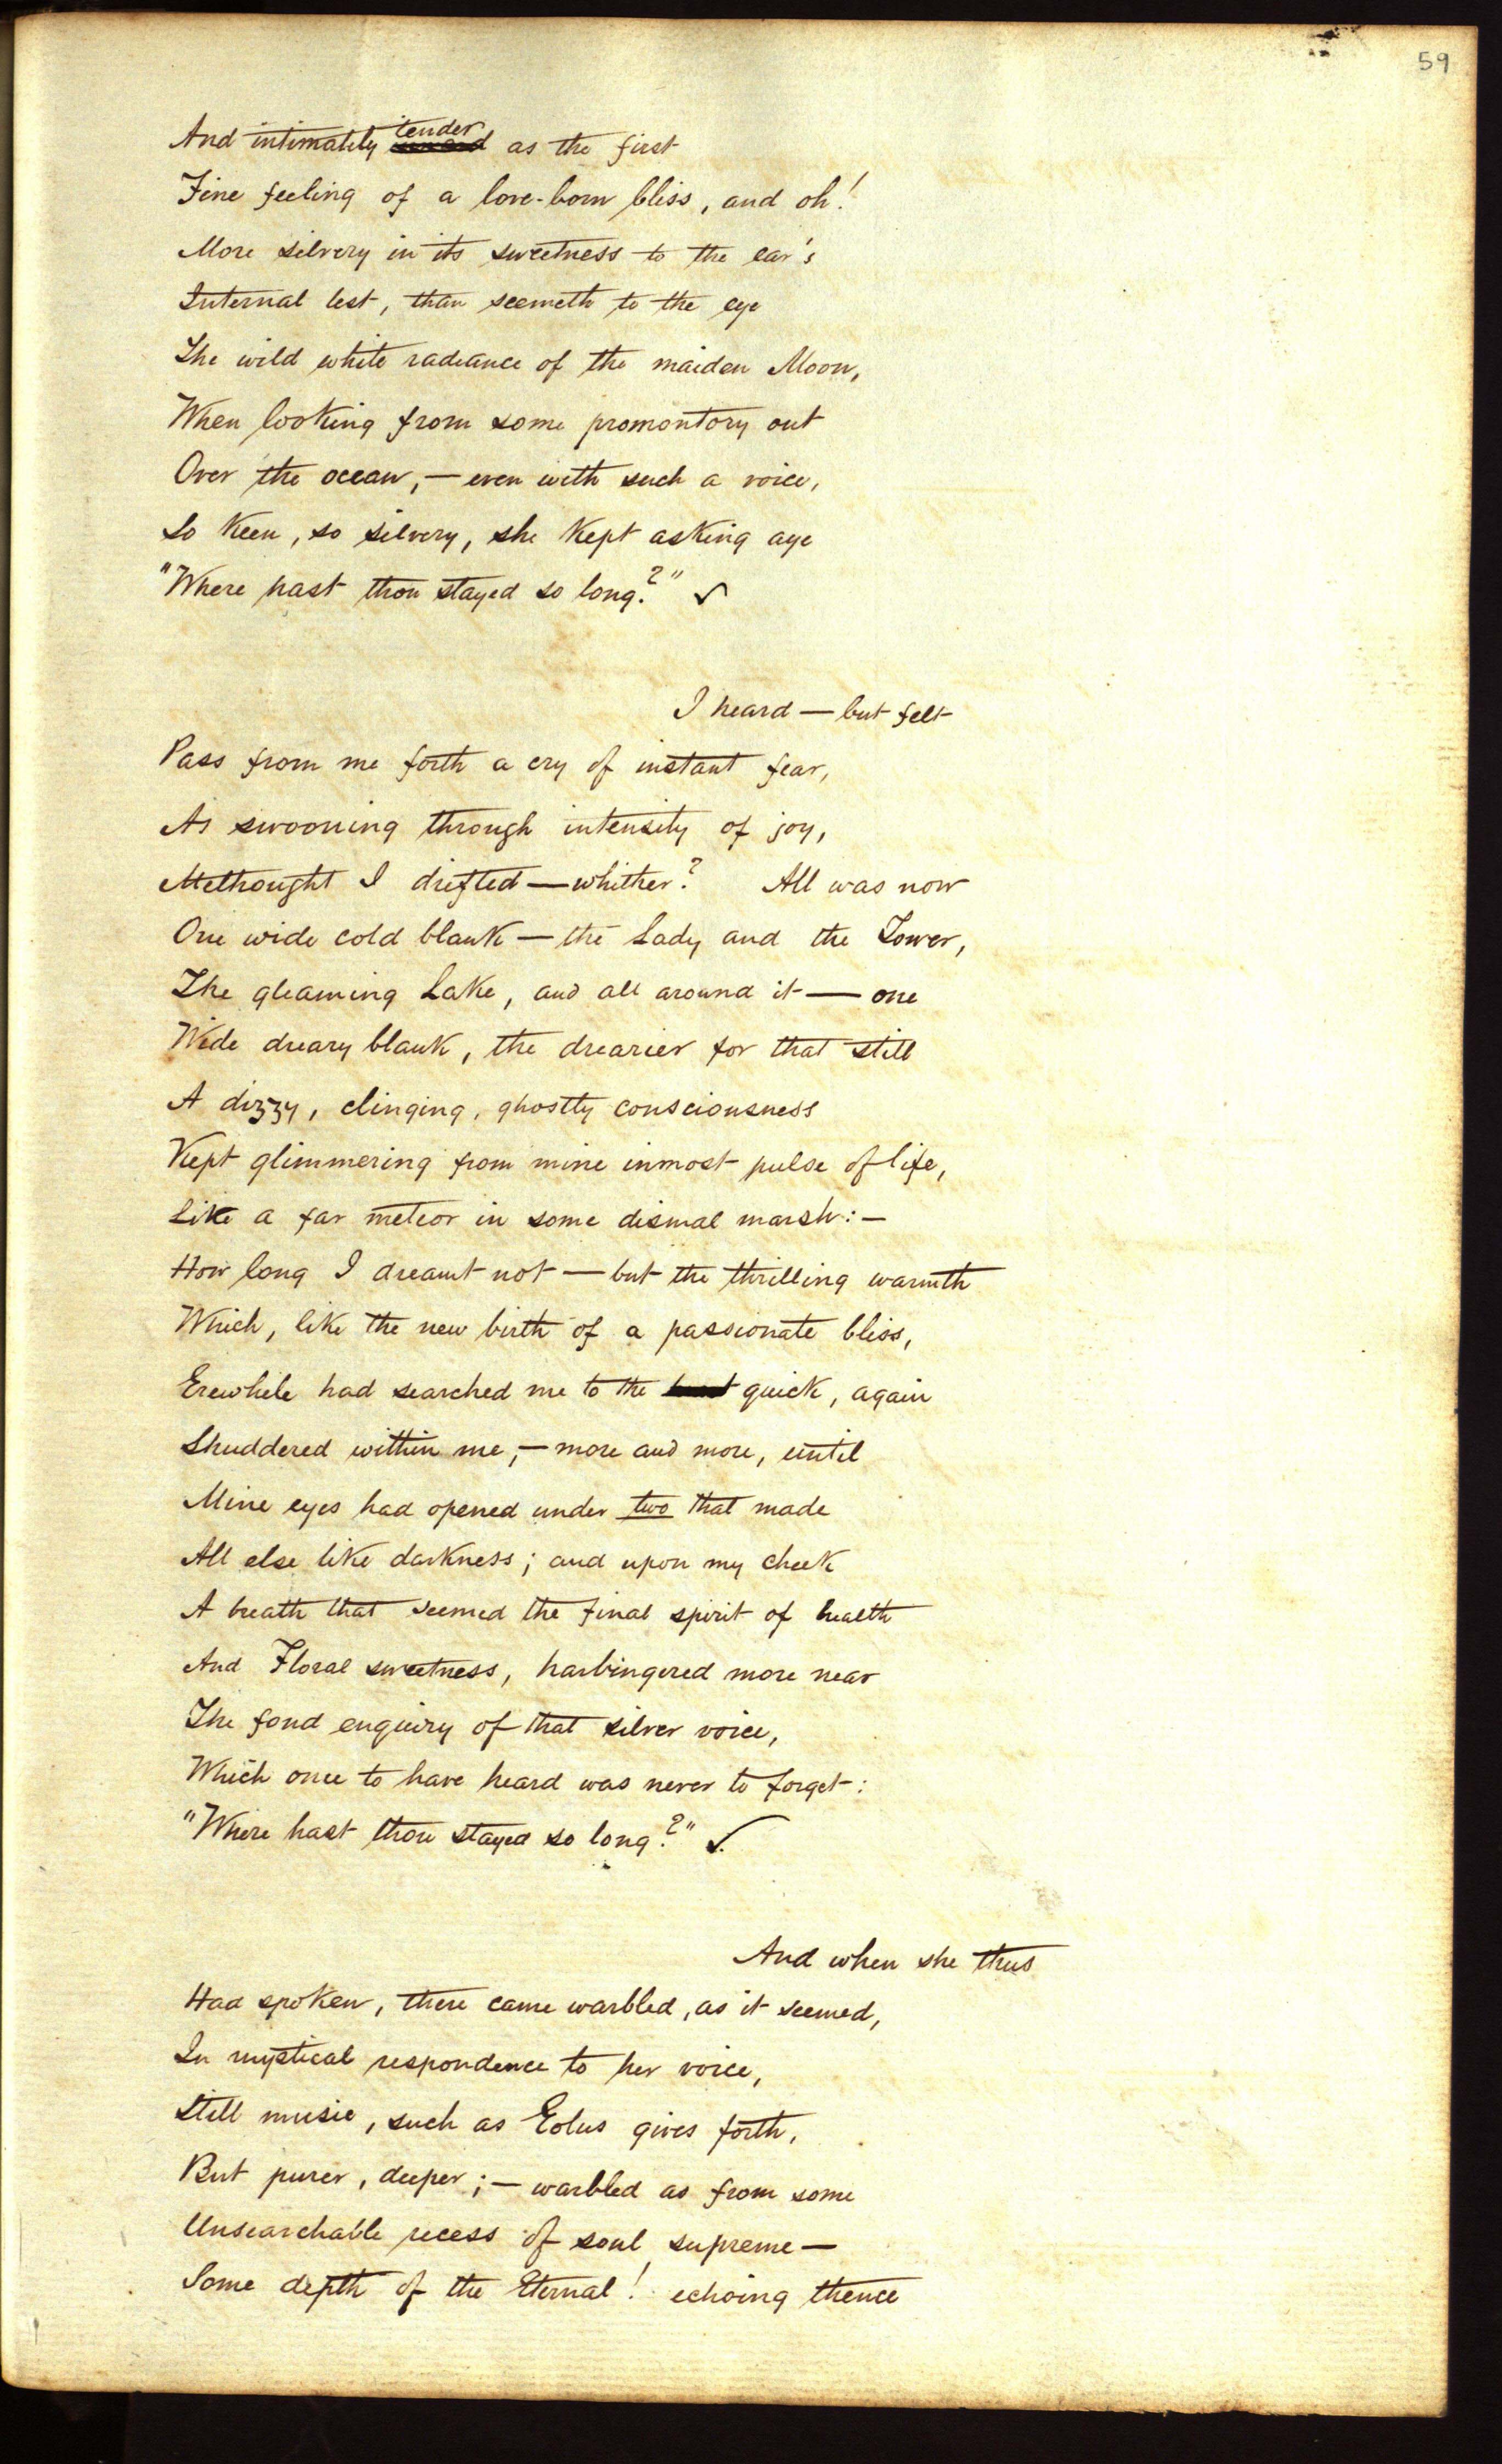 59
And intimately tender as the first
Fine feeling of a love-born bliss, and oh!
More silvery in its sweetness to the ear's
Internal test, than seemeth to the eye
The wild white radiance of the maiden Moon,
When looking from some promontory out
Over the ocean,—even with such a voice,
So keen, so silvery, she kept asking aye
"Where hast thou stayed so long?" ✓
I heard—but felt
Pass from me forth a cry of instant fear,
As swooning through intensity of joy,
Methought I drifted—whither? All was now
One wide cold blank—the Lady and the Tower,
The gleaming Lake, and all around it—one
Wide dreary blank, the drearier for that still
A dizzy, clinging, ghostly consciousness
Kept glimmering from mine inmost pulse of life,
Like a far meteor in some dismal marsh:—
How long I dreamt not—but the thrilling warmth
Which, like the new birth of a passionate bliss,
Erewhile had searched me to the quick, again
Shuddered within me,—more and more, until
Mine eyes had opened under two that made
All else like darkness; and upon my cheek
A breath that seemed the final spirit of health
And Floral sweetness, harbingered more near
The fond enquiry of that silver voice,
Which once to have heard was never to forget:
"Where hast thou stayed so long?" ✓
And when she thus
Had spoken, there came warbled, as it seemed,
In mystical respondence to her voice,
Still music, such as Eolus gives forth,
But purer, deeper;—warbled as from some
Unsearchable recess of soul supreme—
Some depth of the Eternal! echoing thence